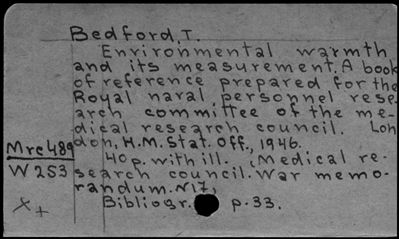 Bedford, T.
Environmental warmth
and its measurement. A book
of reference prepared for the
Royal naval personnel rese-
arch committee of the me-
dical research council. Lon
don, H.M. Stat. Off., 1946.
Mrc489
40 p. with ill. (Medical re-
W253
search council. War memo-
randum. N17)
Bibliogr. p. 33.
X+